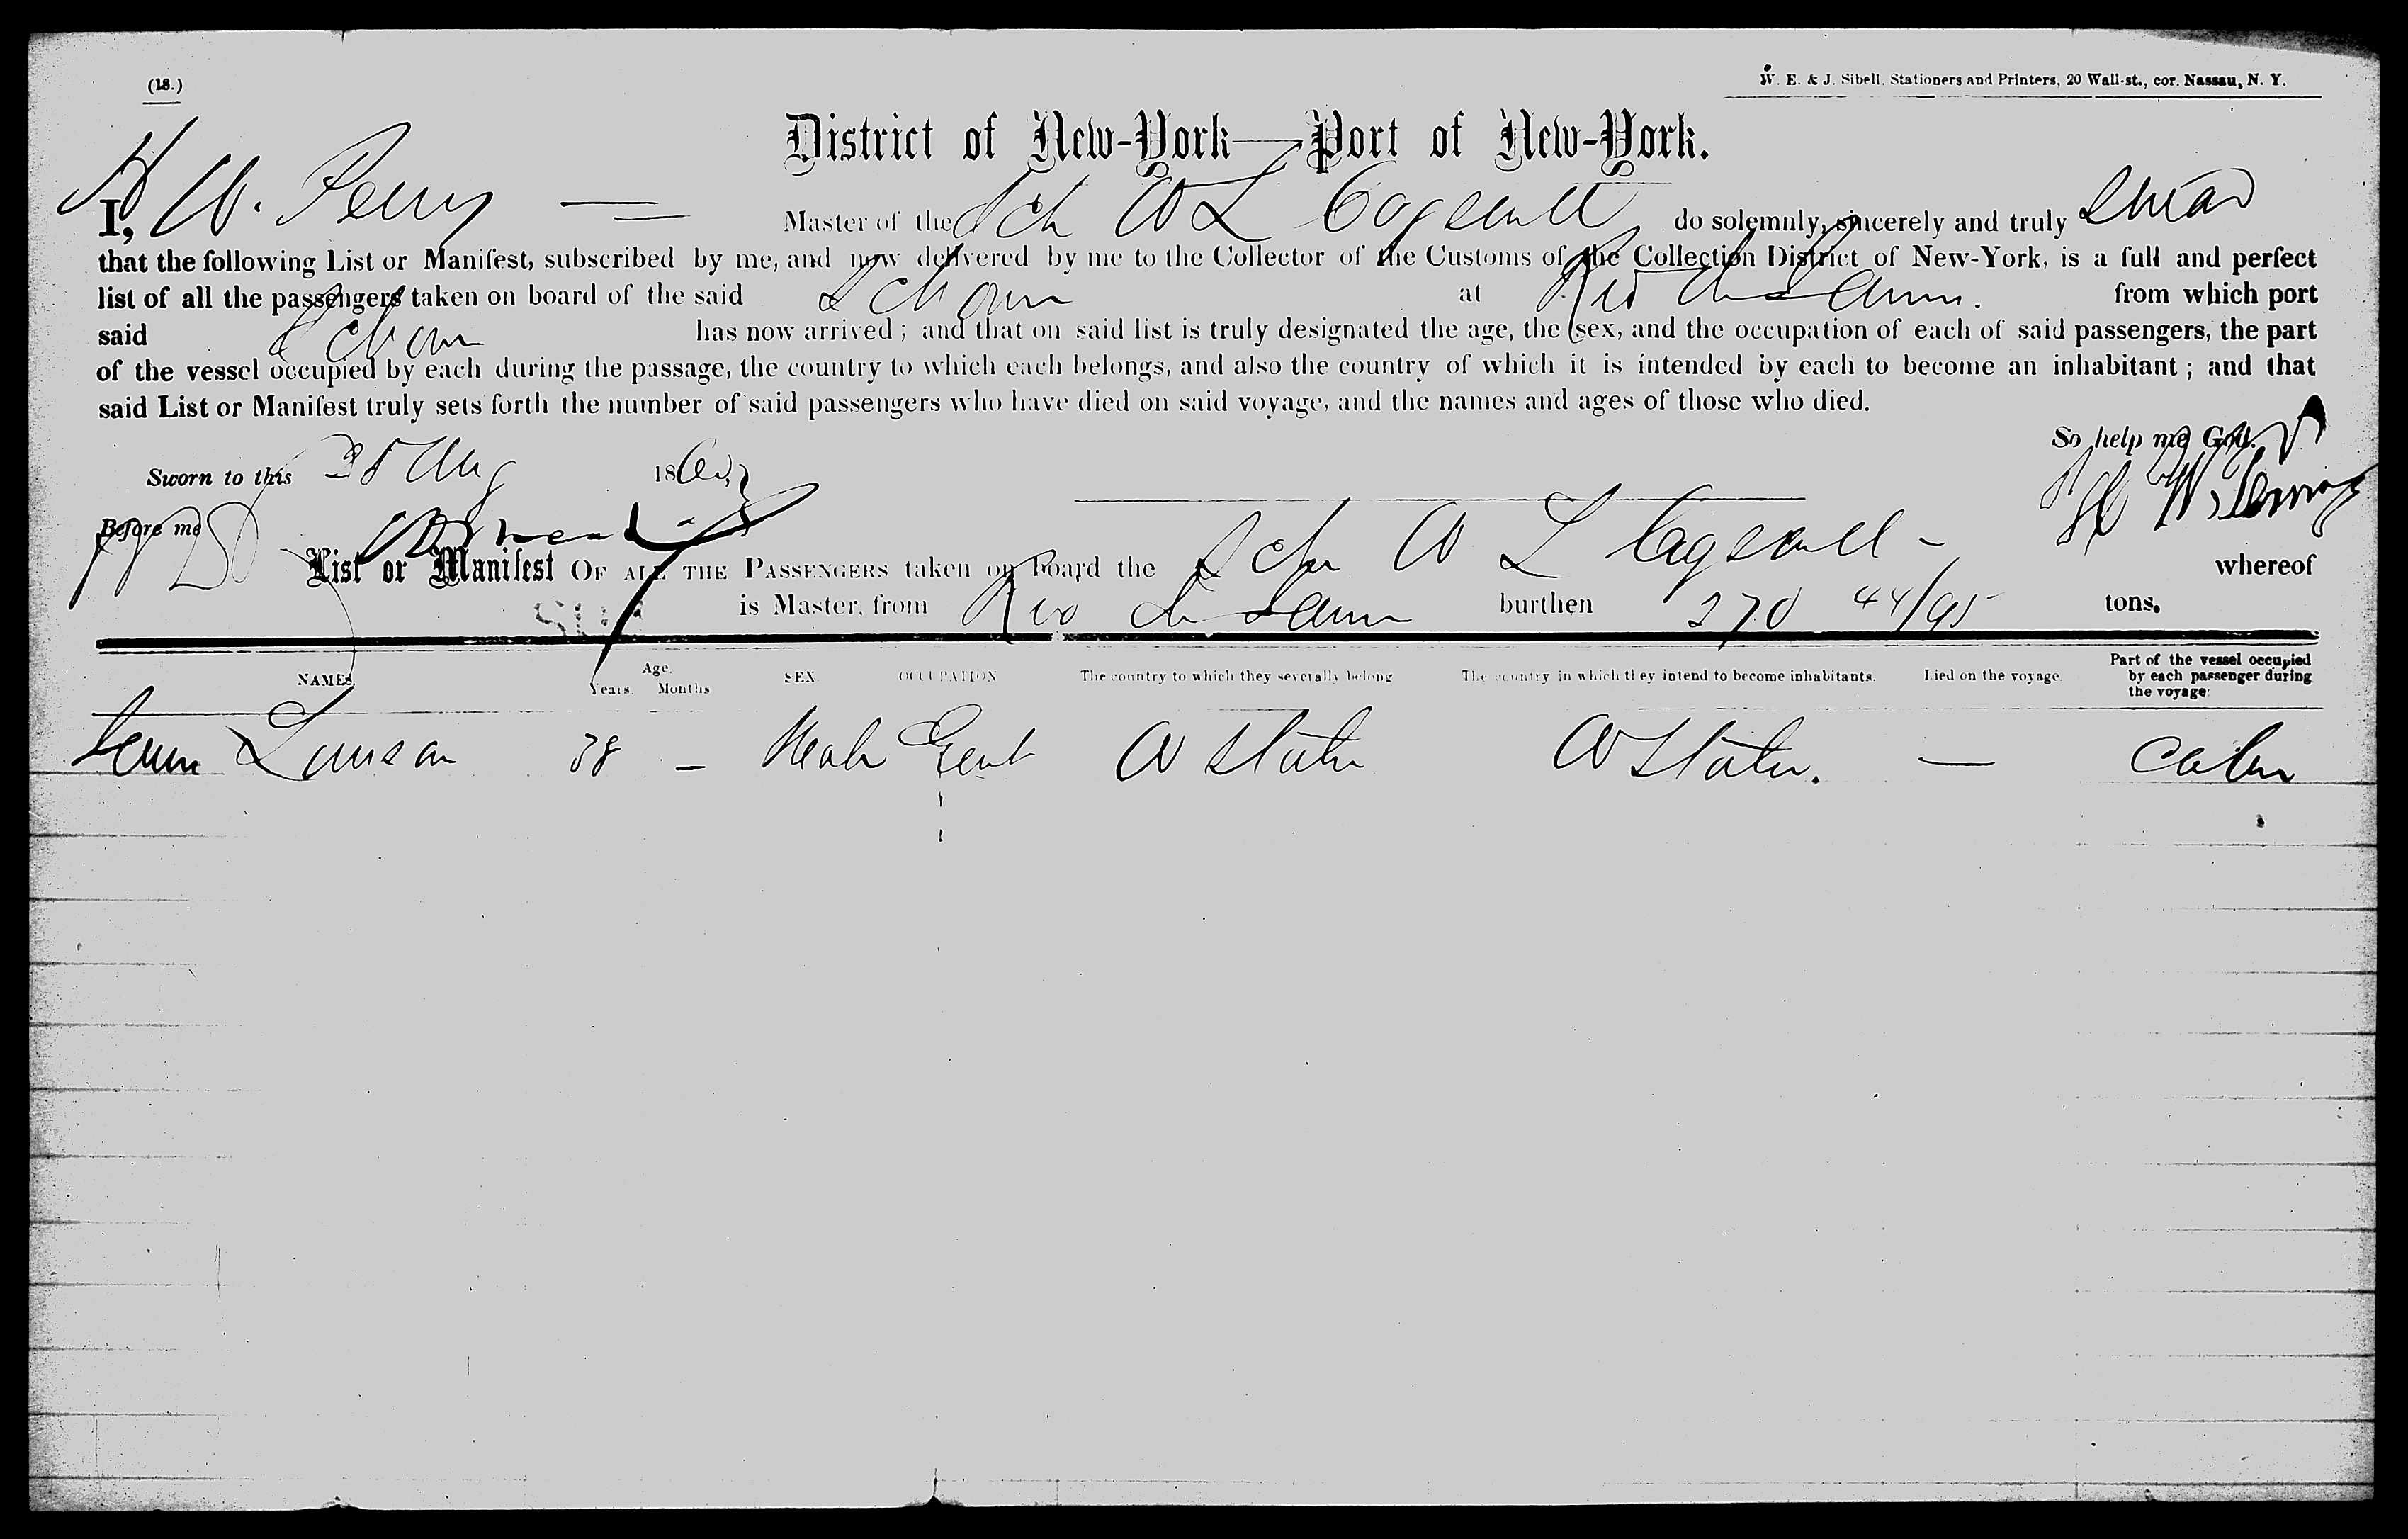 (18.)
W. E. & J. Sibell, Stationers and Printers, 20 Wall-st., cor. Nassau, N. Y.
District of New-York—Port of New-York.
I, H W. Perry Master of the Sch W L do solemnly, sincerely and truly swear
that the following List or Manifest, subscribed by me, and now delivered by me to the Collector of the Customs of the Collection District of New-York, is a full and perfect
list of all the passengers taken on board of the said Schoon at Rio de from which port
said Schoon has now arrived ; and that on said list is truly designated the age, the sex, and the occupation of each of said passengers, the part
of the vessel occupied by each during the passage, the country to which each belongs, and also the country of which it is intended by each to become an inhabitant ; and that
said List or Manifest truly sets forth the number of said passengers who have died on said voyage, and the names and ages of those who died.
So help me God.
Sworn to this 25 Aug 186
Before me
H W Perry
List or Manifest OF ALL THE PASSENGERS taken on board the Schr W L whereof
is Master, from Rio de burthen 270 44/95 tons.
NAMES. Age. Years. Months SEX. OCCUPATION The country to which they severally belong The country in which they intend to become inhabitants. Died on the voyage. Part of the vessel occupied by each passenger during the voyage.
38 — Male Gent U States U States. — Cabin